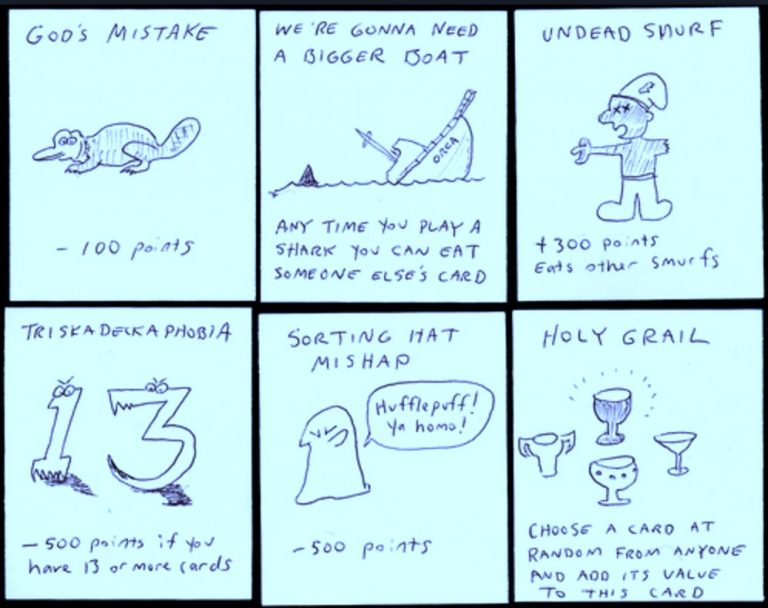 GOD'S MISTAKE
- 100 points
WE'RE GONNA NEED
A BIGGER BOAT
ORCA
ANY TIME YOU PLAY A
SHARK YOU CAN EAT
SOMEONE ELSE'S CARD
UNDEAD SMURF
+300 points
Eats other smurfs
TRISKADECKAPHOBIA
13
-500 points if you
have 13 or more cards
SORTING HAT
MISHAP
Hufflepuff!
Ya homo!
-500 points
HOLY GRAIL
CHOOSE A CARD AT
RANDOM FROM ANYONE
AND ADD ITS VALUE
TO THIS CARD